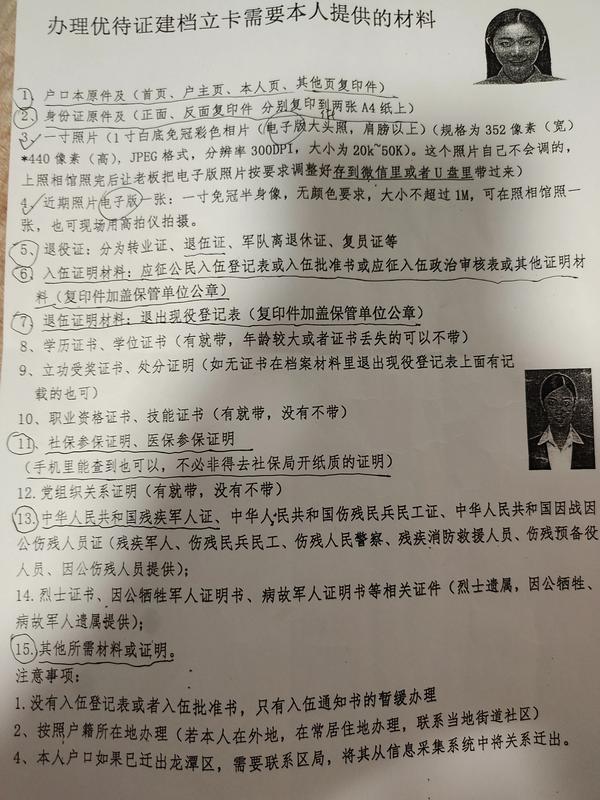 办理优待证建档立卡需要本人提供的材料
1、户口本原件及（首页、户主页、本人页、其他页复印件）
2、身份证原件及（正面、反面复印件 分别复印到两张 A4 纸上）
3、一寸照片（1 寸白底免冠彩色相片（电子版大头照，肩膀以上）（规格为 352 像素（宽）
*440 像素（高），JPEG 格式，分辨率 300DPI，大小为 20k~50K）。这个照片自己不会调的，
上照相馆照完后让老板把电子版照片按要求调整好存到微信里或者 U 盘里带过来）
4、近期照片电子版一张：一寸免冠半身像，无颜色要求，大小不超过 1M，可在照相馆照一
张，也可现场用高拍仪拍摄。
5、退役证：分为转业证、退伍证、军队离退休证、复员证等
6、入伍证明材料：应征公民入伍登记表或入伍批准书或应征入伍政治审核表或其他证明材
料（复印件加盖保管单位公章）
7、退伍证明材料：退出现役登记表（复印件加盖保管单位公章）
8、学历证书、学位证书（有就带，年龄较大或者证书丢失的可以不带）
9、立功受奖证书、处分证明（如无证书在档案材料里退出现役登记表上面有记
载的也可）
10、职业资格证书、技能证书（有就带，没有不带）
11、社保参保证明、医保参保证明
（手机里能查到也可以，不必非得去社保局开纸质的证明）
12.党组织关系证明（有就带，没有不带）
13.中华人民共和国残疾军人证、中华人民共和国伤残民兵民工证、中华人民共和国因战因
公伤残人员证（残疾军人、伤残民兵民工、伤残人民警察、残疾消防救援人员、伤残预备役
人员、因公伤残人员提供）；
14.烈士证书、因公牺牲军人证明书、病故军人证明书等相关证件（烈士遗属，因公牺牲、
病故军人遗属提供）；
15.其他所需材料或证明。
注意事项：
1.没有入伍登记表或者入伍批准书，只有入伍通知书的暂缓办理
2、按照户籍所在地办理（若本人在外地，在常居住地办理，联系当地街道社区）
4、本人户口如果已迁出龙潭区，需要联系区局，将其从信息采集系统中将关系迁出。